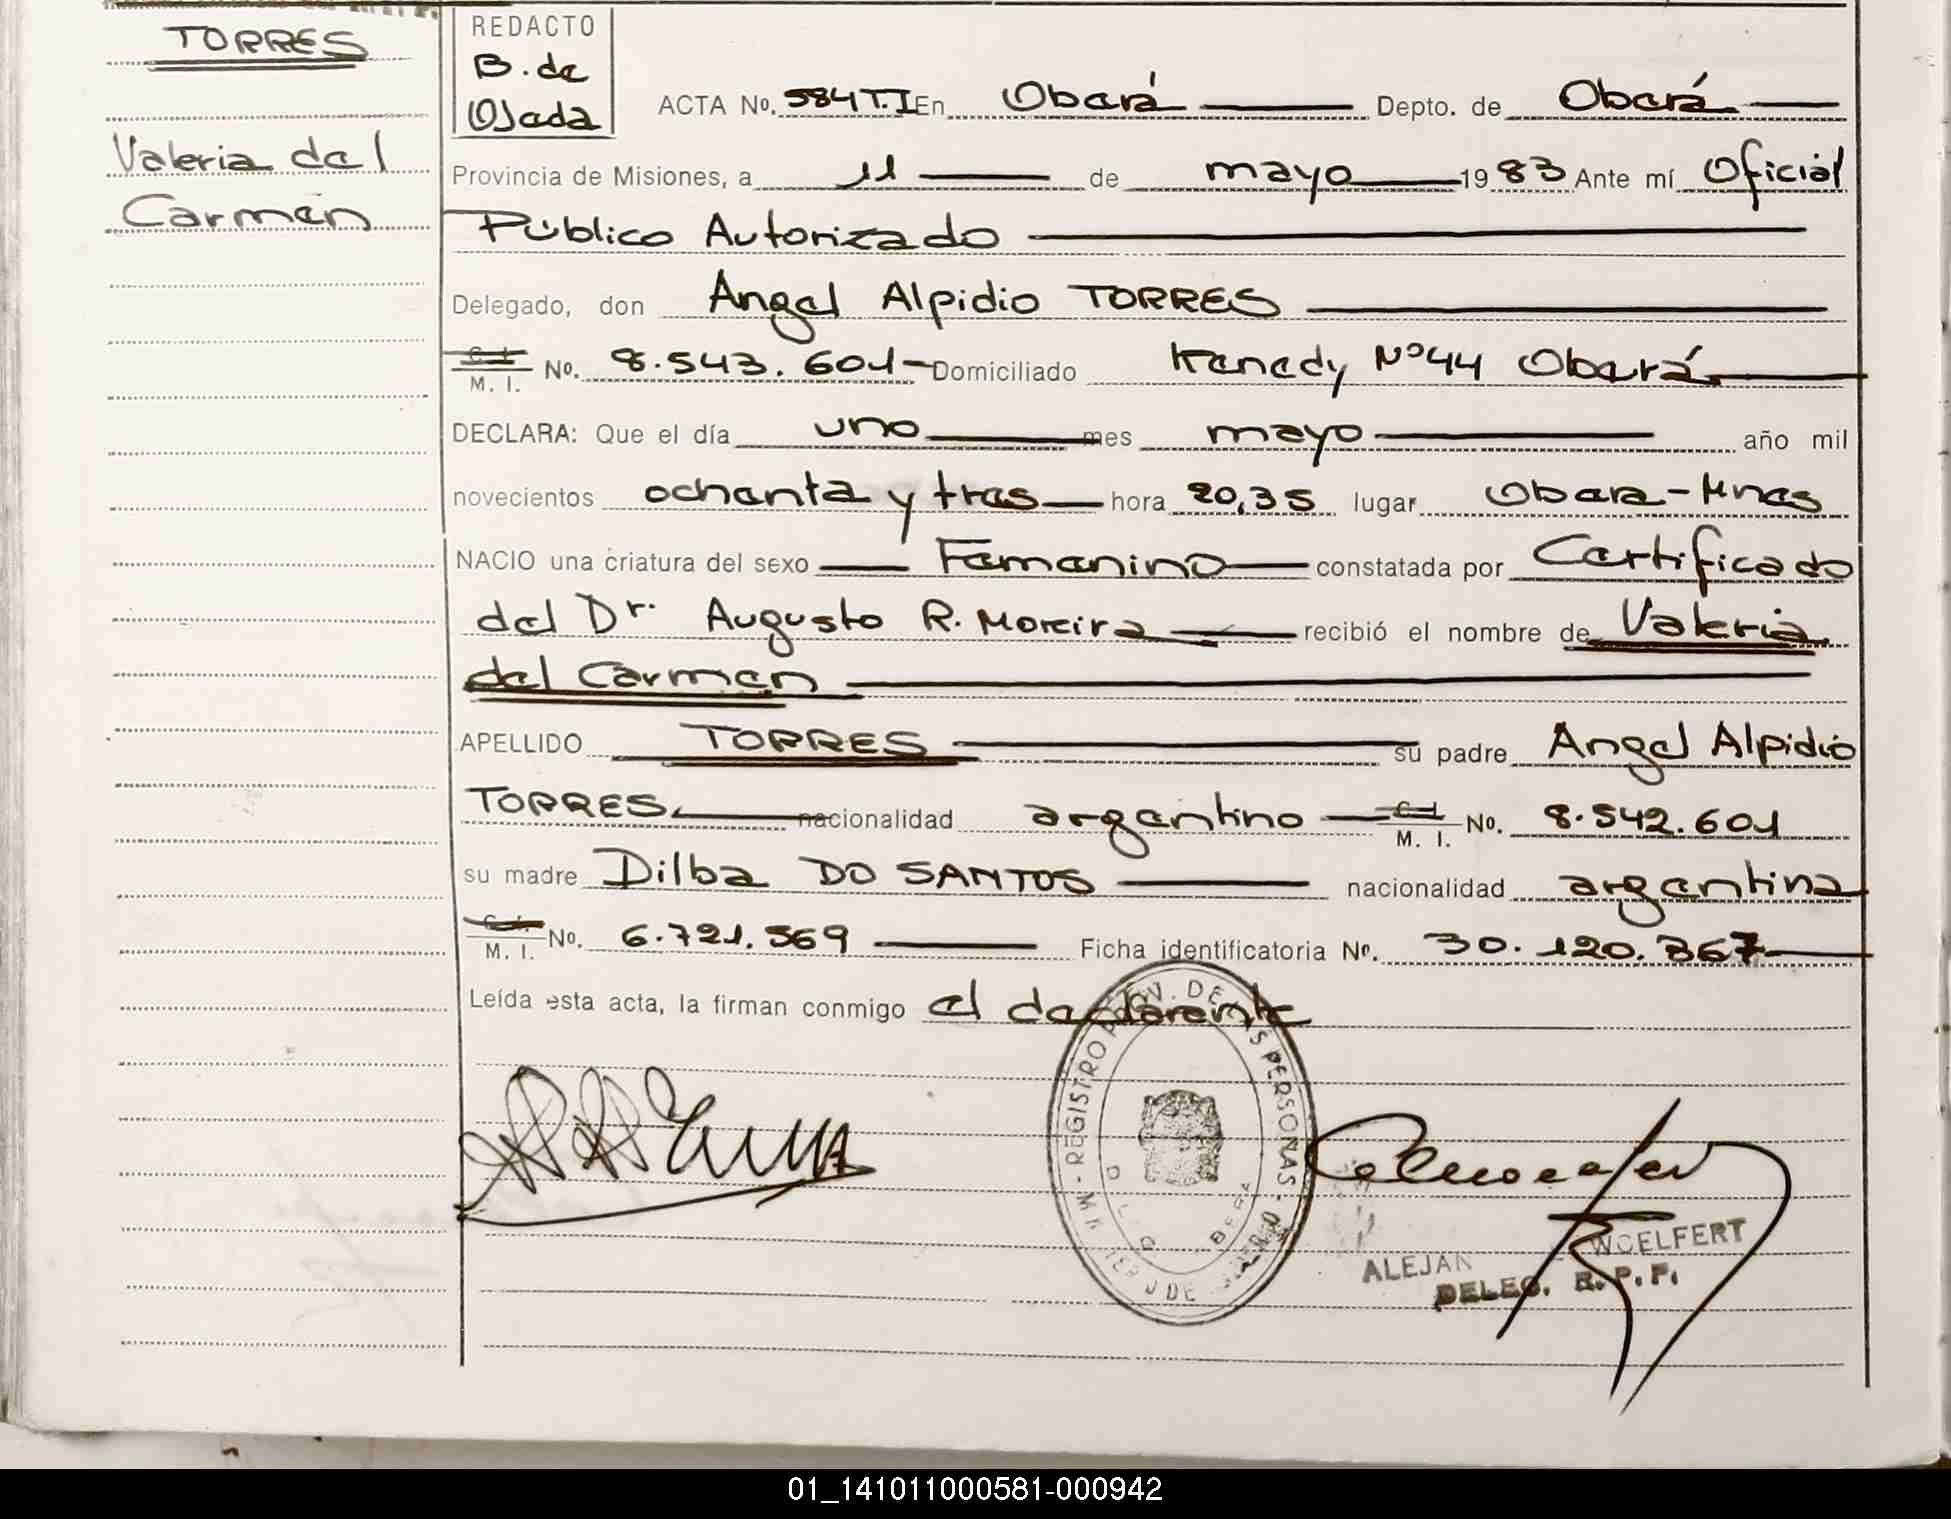 TORRES
Valeria del
Carmen
REDACTO
B. de
Ojeda
ACTA No. 584 T.I En Oberá Depto. de Oberá
Provincia de Misiones, a 11 de mayo 1983 Ante mí Oficial
Público Autorizado
Delegado, don Angel Alpidio TORRES
C. I.
M. I. No. 8.543.601 Domiciliado Kenedy Nº44 Oberá
DECLARA: Que el día uno mes mayo año mil
novecientos ochenta y tres hora 20,35 lugar Obera-Mnes
NACIO una criatura del sexo Femenino constatada por Certificado
del Dr. Augusto R. Moreira recibió el nombre de Valeria
del Carmen
APELLIDO TORRES su padre Angel Alpidio
TORRES nacionalidad argentino C. I.
M. I. No. 8.542.601
su madre Dilba DO SANTOS nacionalidad argentina
C. I.
M. I. No. 6.721.569 Ficha identificatoria No. 30.120.367
Leída esta acta, la firman conmigo el declarante
REGISTRO PROV. DE LAS PERSONAS
ALEJAN WOELFERT
DELEG. R. P. P.
01_141011000581-000942